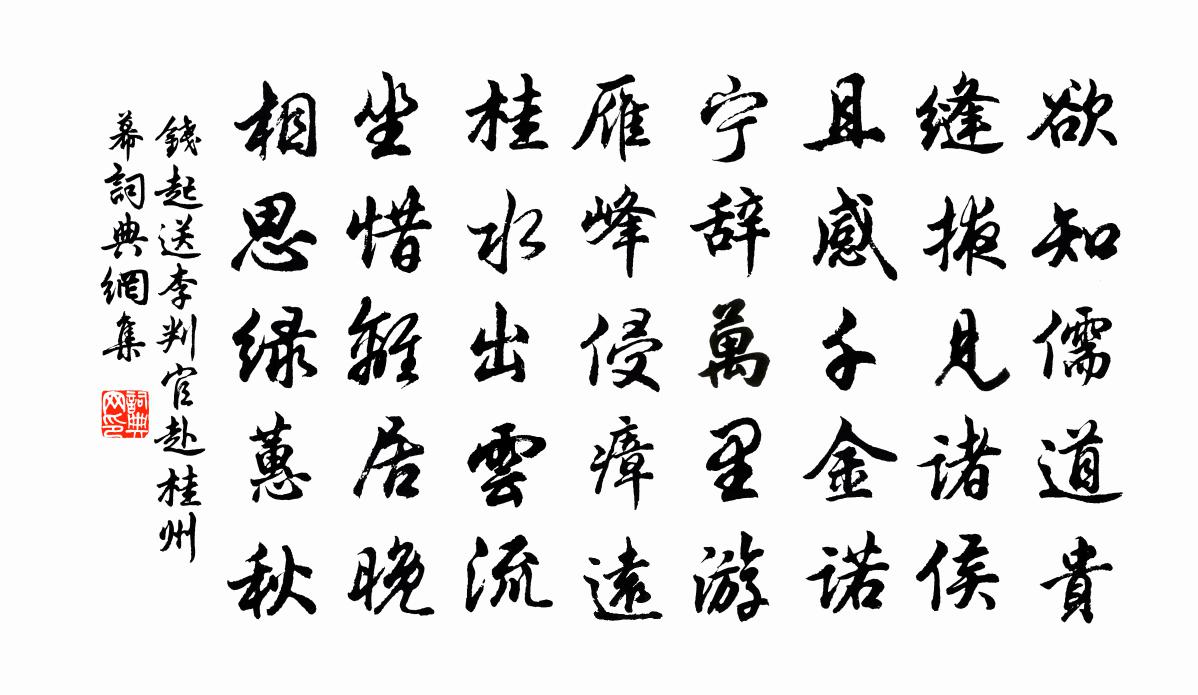 欲知儒道貴
缝掖見諸侯
且感千金诺
宁辞萬里游
雁峰侵瘴遠
桂水出雲流
坐惜離居晚
相思绿蕙秋
錢起送李判官赴桂州
幕詞典網集
詞典网印